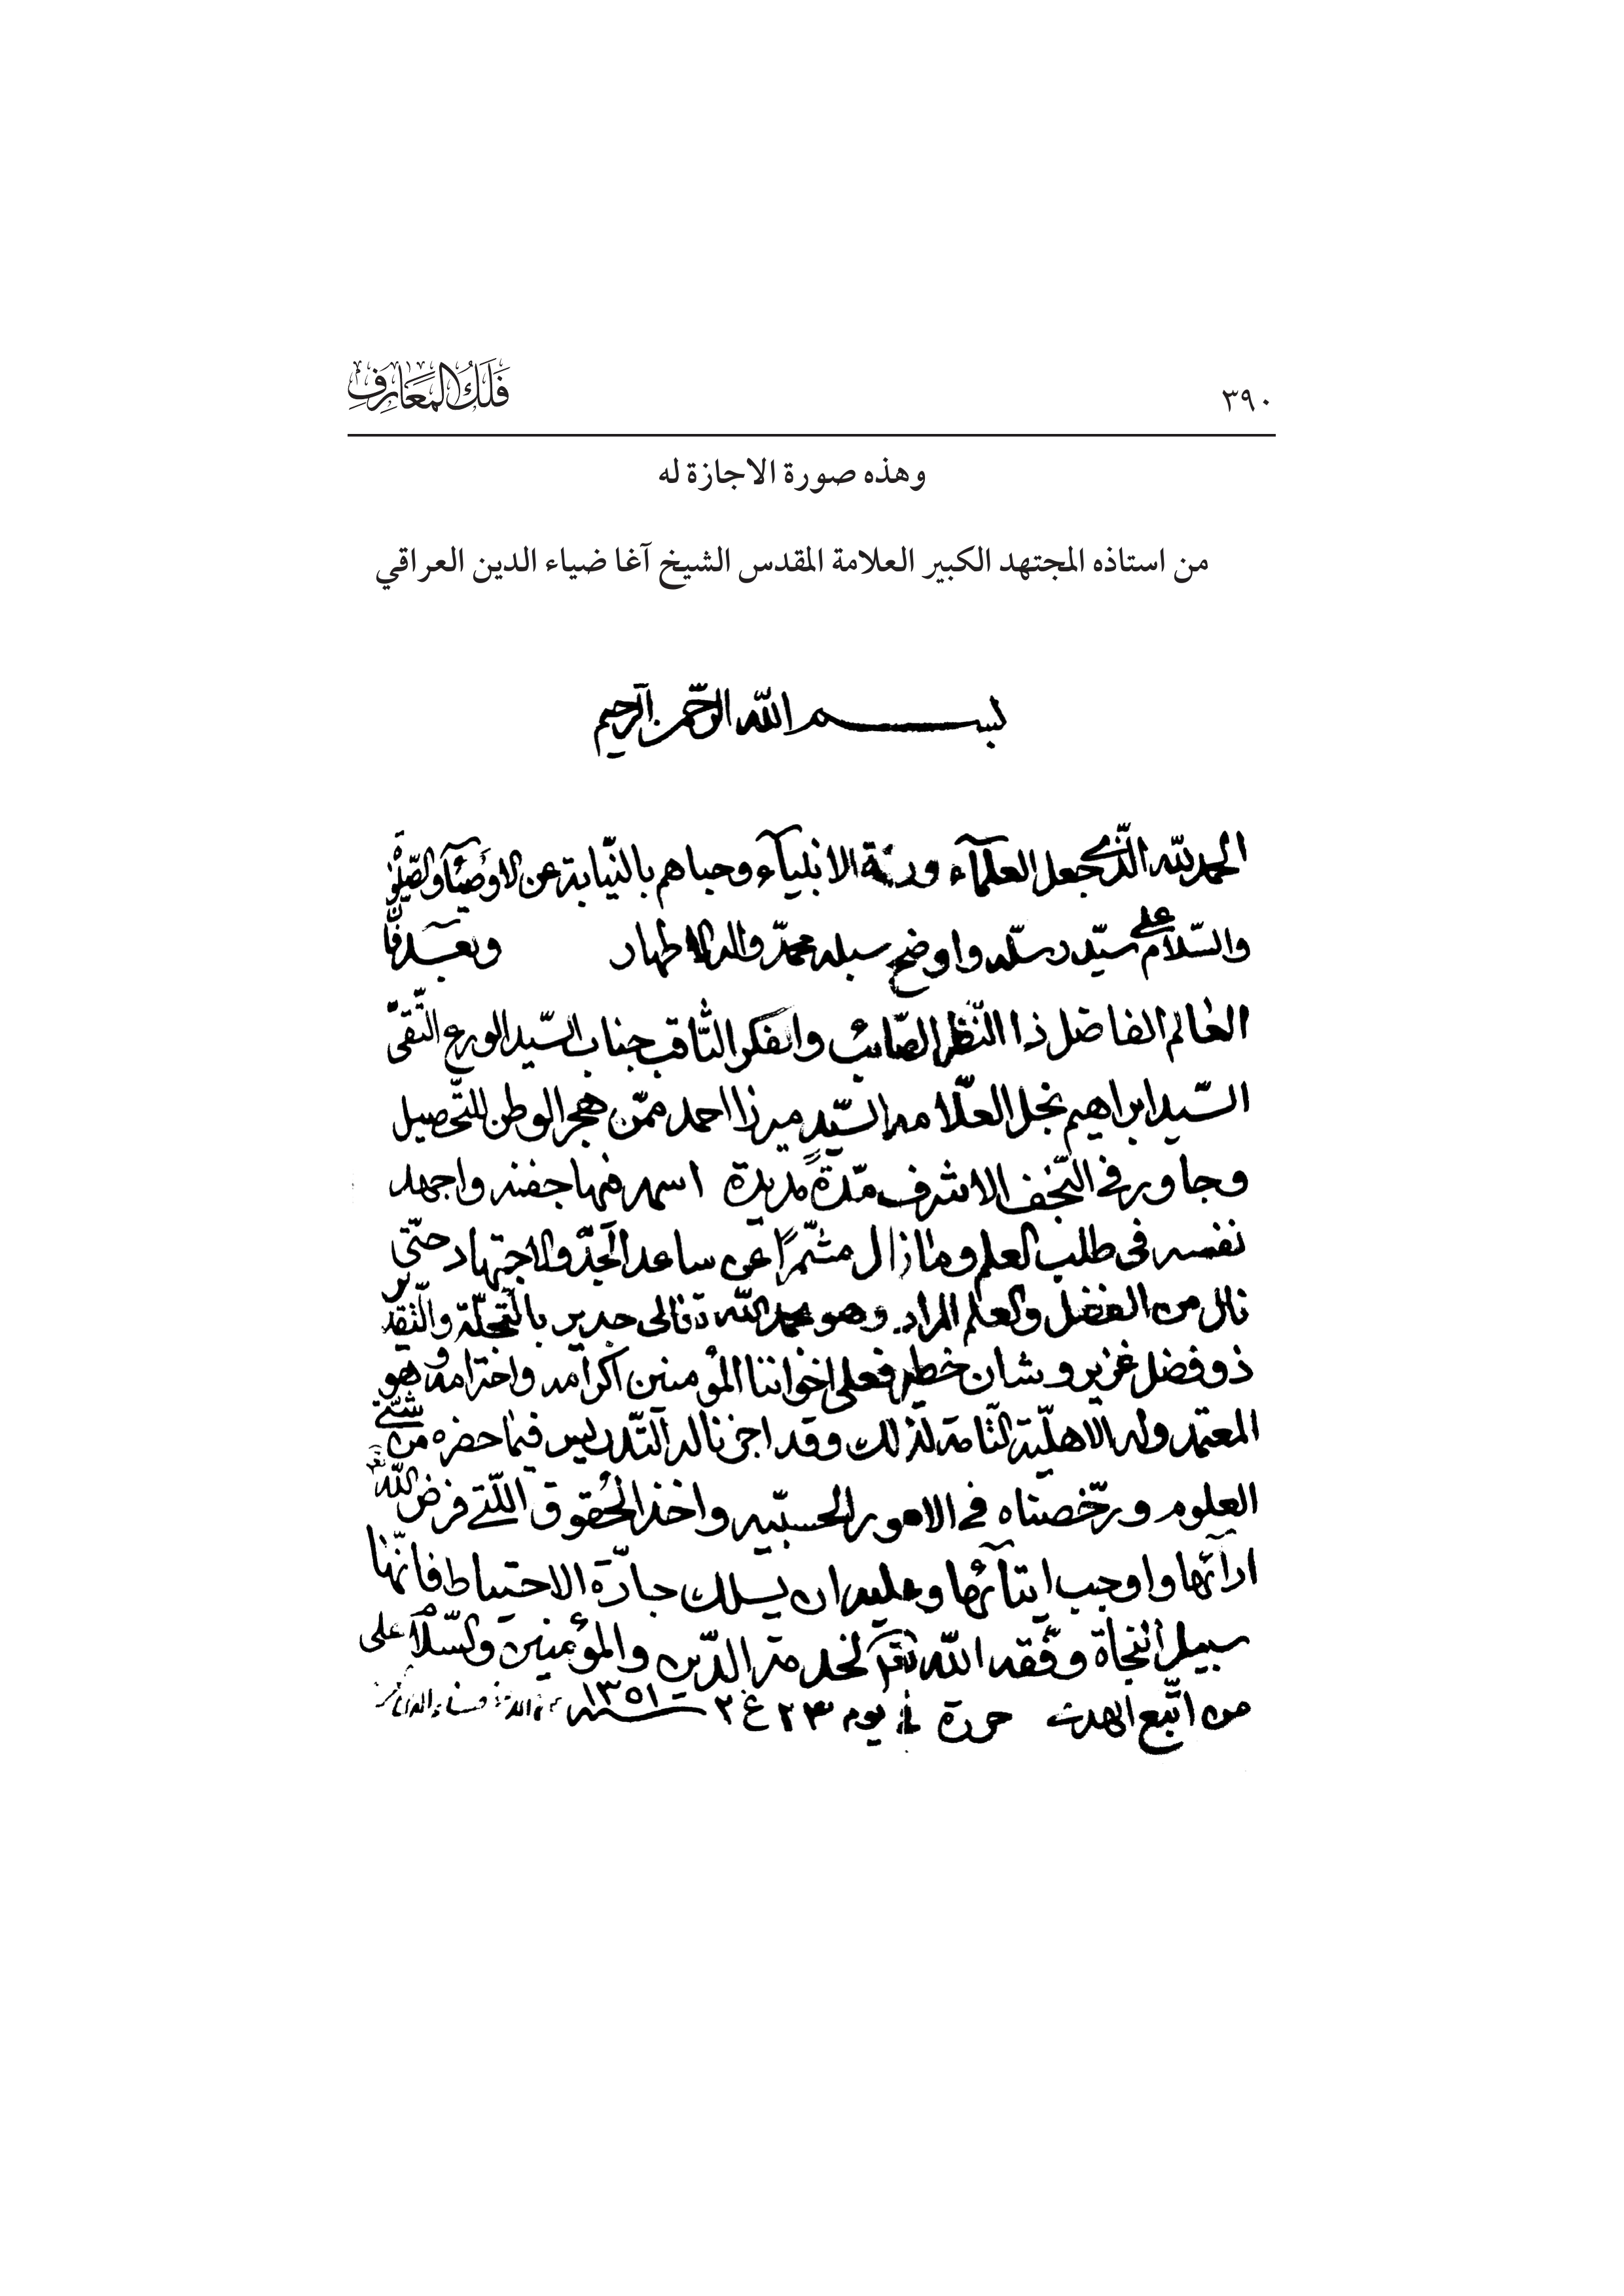 ٣٩٠
فَلَكُ المَعَارِفِ
وهذه صورة الاجازة له
من استاذه المجتهد الكبير العلامة المقدس الشيخ آغا ضياء الدين العراقي
بسم الله الرّحمن الرّحيم
الحمد لله الّذي جعل العلمآء ورثة الانبيآء وحباهم بالنّيابة عن الاوصيآء والصّلوة
والسّلام على سيّد رسله واوضح سبله محمّد واله الاطهار وبعد فانّ
العالم الفاضل ذا النّظر الصّائب والفكر الثّاقب جناب السّيد الورع التّقىّ
السّيد ابراهيم نجل العلّامه السّيد ميرزا احمد ممّن هجر الوطن للتّحصيل
وجاور في النّجف الاشرف مدّةً مديدة اسهر فيها جفنه واجهد
نفسه فى طلب العلم وما زال مشمّراً عن ساعد الجدّ والاجتهاد حتّى
نال من الفضل والعلم المراد وهو بحمد الله تعالى جدير بالتّجلّة والتّقدير
ذو فضل غزير وشان خطير فعلى اخواننا المؤمنين اكرامه واحترامه وهو
المعتمد وله الاهليّة التّامة لذلك وقد اجزنا له التّدريس فيما حضره من شتّى
العلوم ورخّصناه في الامور الحسبّيه واخذ الحُقوق اللّتي فرض الله
ادآئها واوجب ايتآئها وعليه ان يسلك جادّة الاحتياط فانّها
سبيل النجاة وفّقه الله لخدمة الدّين والمؤمنين والسّلام على
من اتّبع الهدى حررة في يوم ٢٣ ع ٢ سنه ١٣٥١ ضياء الدين